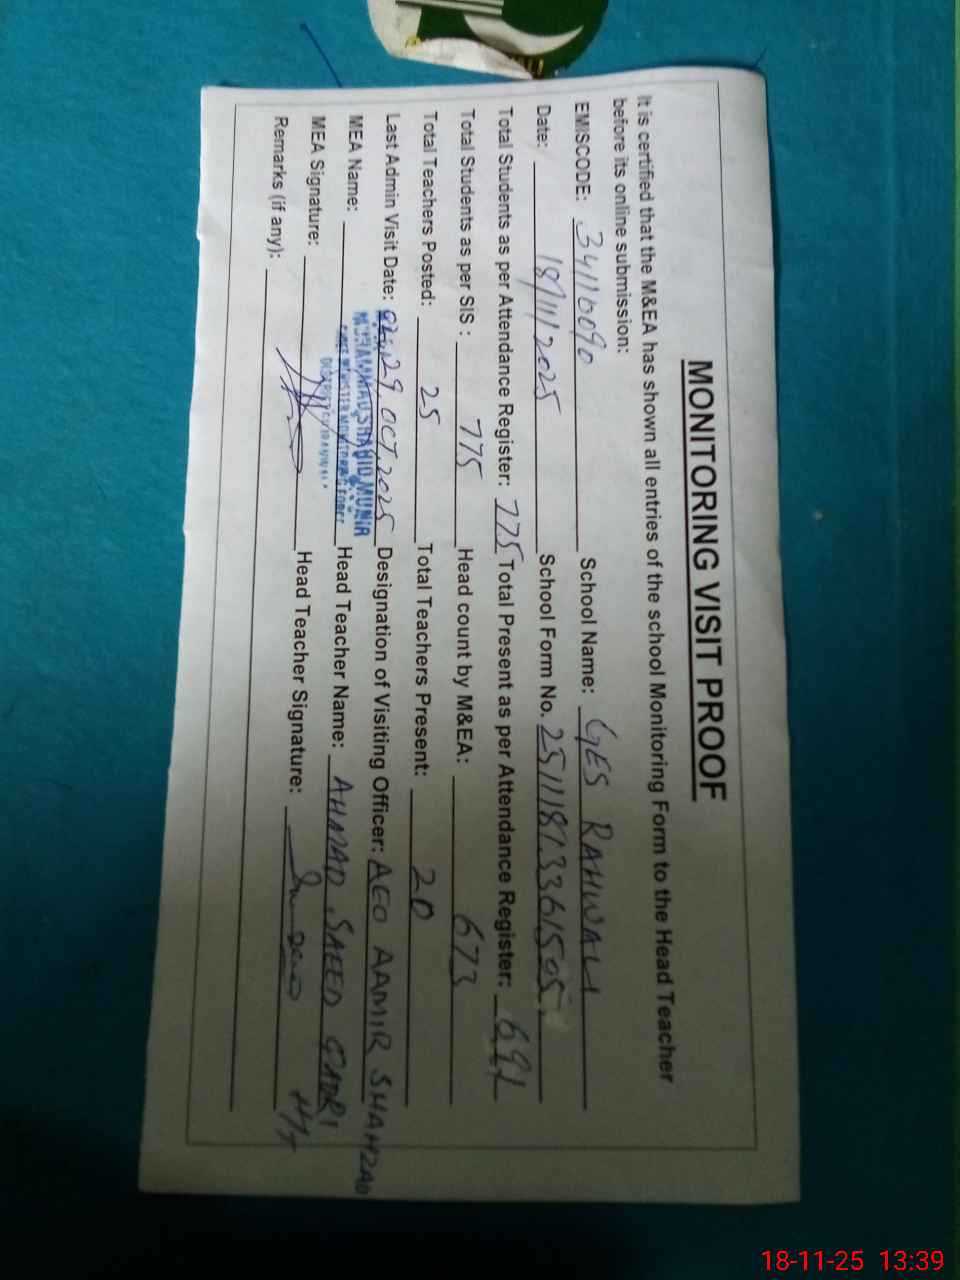 MONITORING VISIT PROOF
It is certified that the M&EA has shown all entries of the school Monitoring Form to the Head Teacher
before its online submission:
EMISCODE: 34110090 School Name: GES RAHWALI
Date: 18/11/2025 School Form No. 2511181.3361505.
Total Students as per Attendance Register: 775 Total Present as per Attendance Register: 691
Total Students as per SIS : 775 Head count by M&EA: 673
Total Teachers Posted: 25 Total Teachers Present: 20
Last Admin Visit Date: 29, OCT, 2025 Designation of Visiting Officer: AEO AAMIR SHAHZAD
MEA Name: MUHAMMAD SHAHID MUNIR Head Teacher Name: AHMAD SAEED QADRI
CHIEF MINISTER MONITORING FORCE
DISTRICT GUJRANWALA
MEA Signature: Head Teacher Signature:
Remarks (if any):
18-11-25 13:39